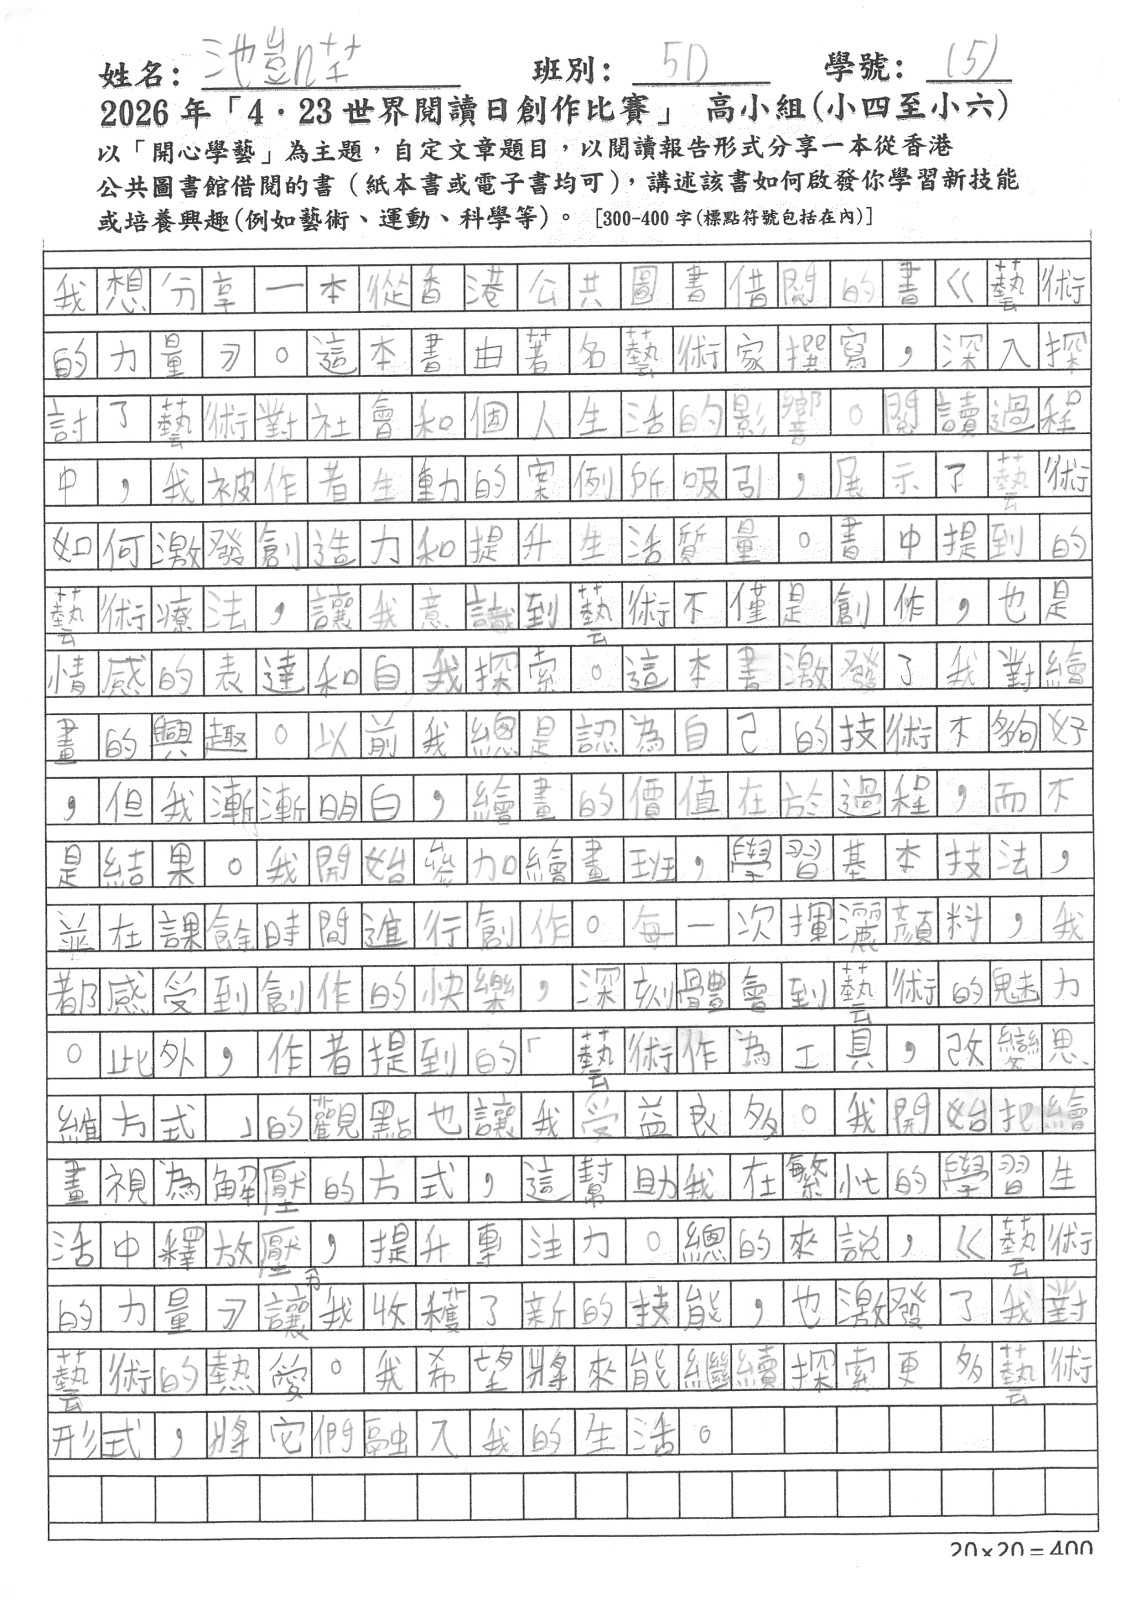 姓名: 池
班別: 5D
學號: (5)
2026 年「4．23 世界閱讀日創作比賽」 高小組(小四至小六)
以「開心學藝」為主題，自定文章題目，以閱讀報告形式分享一本從香港
公共圖書館借閱的書（紙本書或電子書均可)，講述該書如何啟發你學習新技能
或培養興趣(例如藝術、運動、科學等)。 [300-400 字(標點符號包括在內)]
我想分享一本從香港公共圖書借閱的書《藝術
的力量》。這本書由著名藝術家撰寫，深入探
討了藝術對社會和個人生活的影響。閱讀過程
中，我被作者生動的案例所吸引，展示了藝術
如何激發創造力和提升生活質量。書中提到的
藝術療法，讓我意識到藝術不僅是創作，也是
情感的表達和自我探索。這本書激發了我對繪
畫的興趣。以前我總是認為自己的技術不夠好
，但我漸漸明白，繪畫的價值在於過程，而不
是結果。我開始參加繪畫班，學習基本技法，
並在課餘時間進行創作。每一次揮灑顏料，我
都感受到創作的快樂，深刻體會到藝術的魅力
。此外，作者提到的「藝術作為工具，改變思
維方式」的觀點也讓我受益良多。我開始把繪
畫視為解壓的方式，這幫助我在繁忙的學習生
活中釋放壓力，提升專注力。總的來說，《藝術
的力量》讓我收穫了新的技能，也激發了我對
藝術的熱愛。我希望將來能繼續探索更多藝術
形式，將它們融入我的生活。
20×20=400